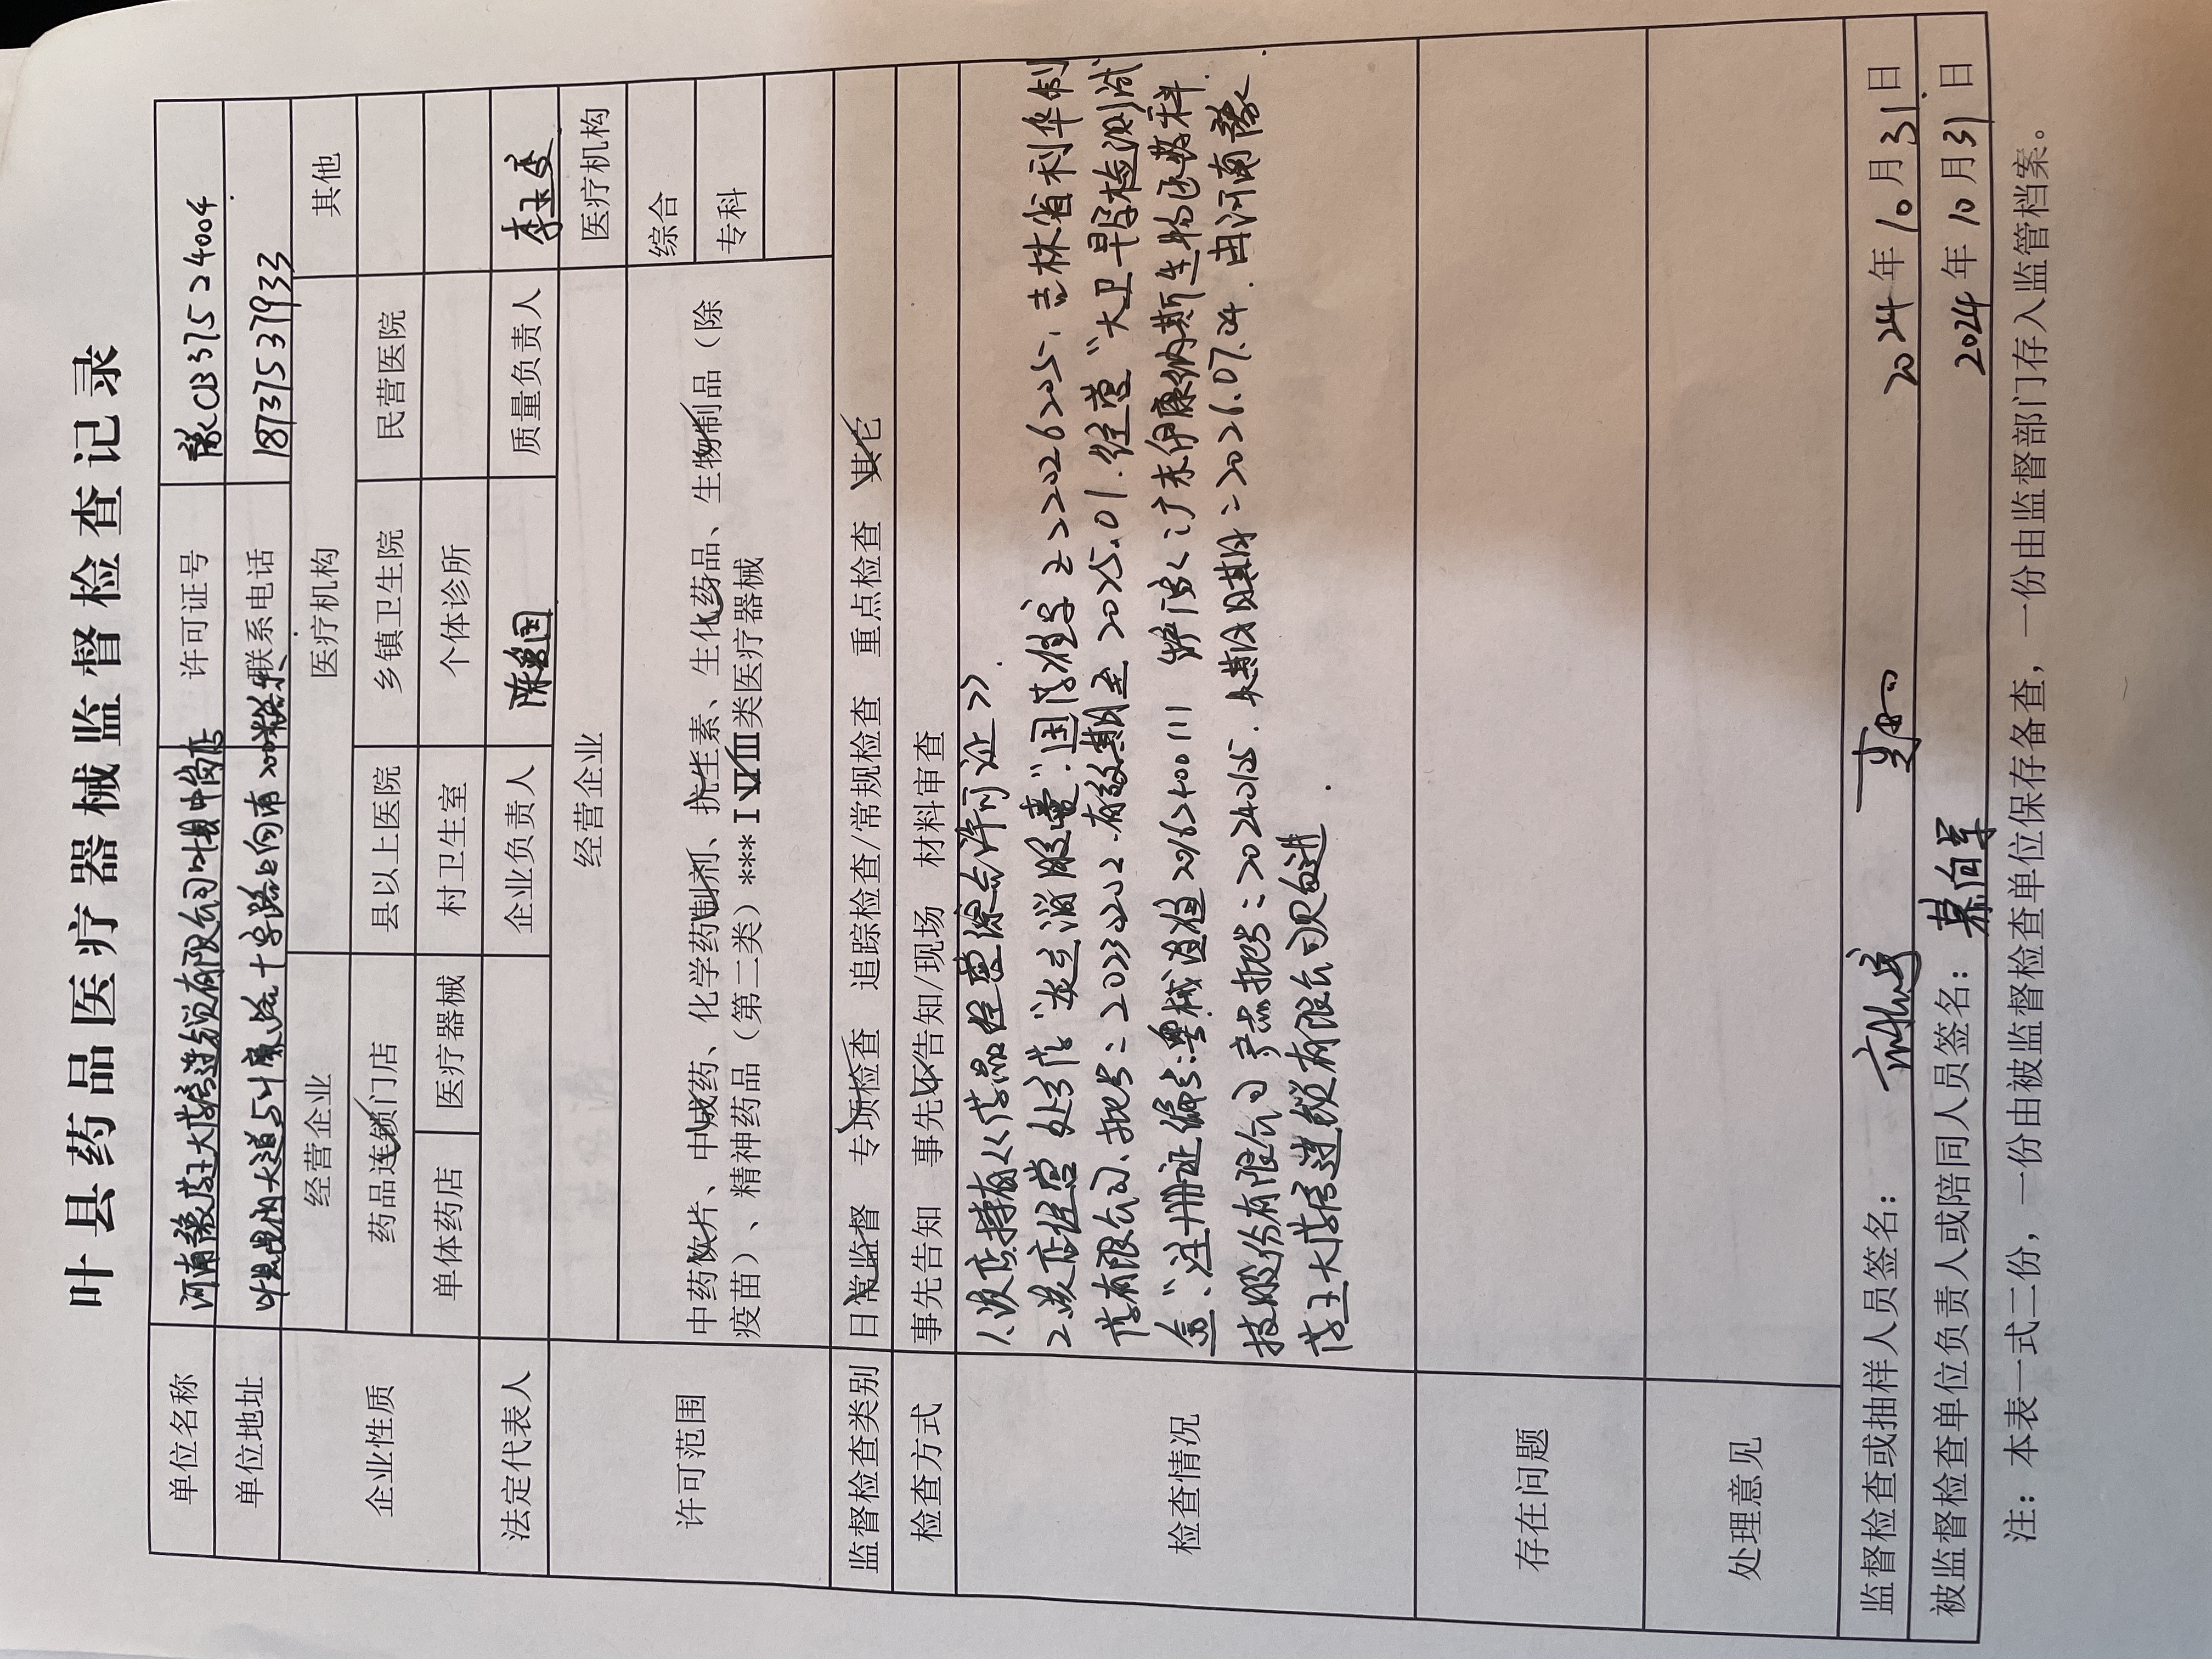 叶县药品医疗器械监督检查记录
单位名称 河南豫药王大药房连锁有限公司叶县中岗店 许可证号 豫CB37524004
单位地址 叶县 大道与 十字路口向南200米 联系电话 18737537933
企业性质 经营企业 医疗机构 其他
药品连锁门店 县以上医院 乡镇卫生院 民营医院
单体药店 医疗器械 村卫生室 个体诊所
法定代表人 企业负责人 质量负责人
许可范围 经营企业 医疗机构
中药饮片、中成药、化学药制剂、抗生素、生化药品、生物制品（除 综合
疫苗）、精神药品（第二类）***ⅠⅡⅢ类医疗器械 专科
监督检查类别 日常监督 专项检查 追踪检查/常规检查 重点检查 其它
检查方式 事先告知 事先不告知/现场 材料审查
检查情况
1、该店持有《药品经营许可证》.
2.该店经营处方药"炎立消胶囊".国药准字Z22026205,吉林省利华制
药有限公司、批号:20231202.有效期至2025.01.经营"大卫早早孕检测试
注册证编号:粤械注准20162400111
技股份有限公司 产品批号:20240125.失效日期:2026.07.24.由河南豫
药王大药房连锁有限公司配进.
存在问题
处理意见
监督检查或抽样人员签名: 2024年10月31日
被监督检查单位负责人或陪同人员签名: 2024年10月31日
注：本表一式二份，一份由被监督检查单位保存备查，一份由监督部门存入监管档案。